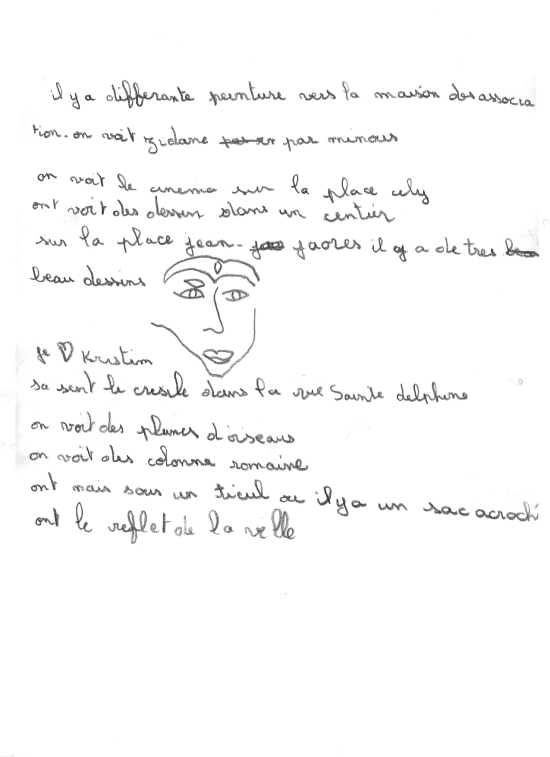 il y a differante peinture vers la maison des associa
tion. on voit zidane par minous
on voit le cinema sur la place cely
ont voit des dessin dans un centier
sur la place jean- jaores il y a de tres
beau dessins
je ♡ Kristim
sa sent le creside dans la rue Sainte delphine
on voit des plumes d'oiseaus
on voit des colonne romaine
ont mais sous un tieul ou il y a un sac acroché
ont le reflet de la ville